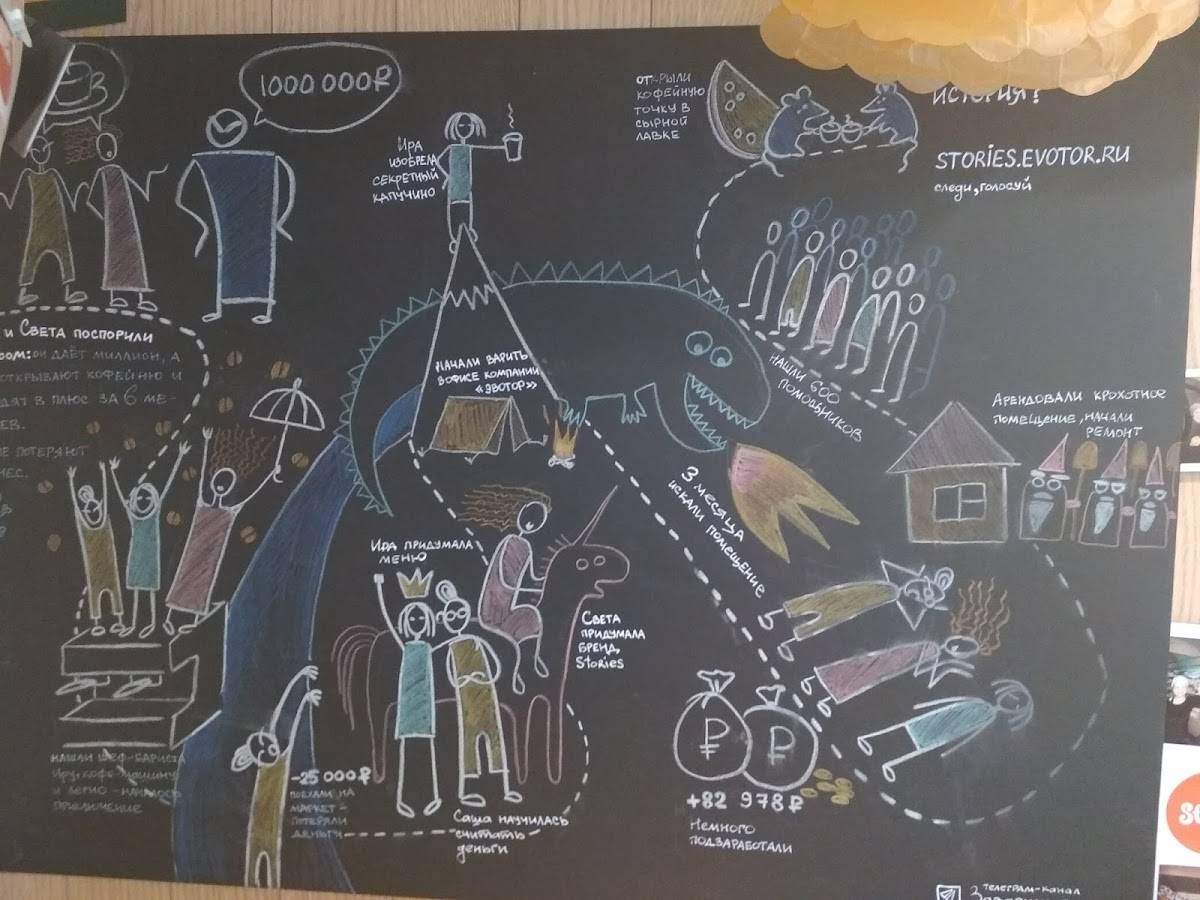 1000 000₽
и СВЕТА ПОСПОРИЛИ
ОН ДАЁТ МИЛЛИОН, А
ОТКРЫВАЮТ КОФЕЙНЮ И
В ПЛЮС ЗА 6 МЕ-
НАШЛИ ШЕФ-БАРИСТА
ИРУ, КОФЕ-МАШИНУ
ПРИКЛЮЧЕНИЕ
ИРА
ИЗОБРЕЛА
СЕКРЕТНЫЙ
КАПУЧИНО
НАЧАЛИ ВАРИТЬ
В ОФИСЕ КОМПАНИИ
«ЭВОТОР»
ИРА ПРИДУМАЛА
МЕНЮ
СВЕТА
ПРИДУМАЛА
БРЕНД,
Stories
-25 000₽
ПОЕХАЛИ НА
МАРКЕТ -
ПОТЕРЯЛИ
ДЕНЬГИ
САША НАУЧИЛАСЬ
СЧИТАТЬ
ДЕНЬГИ
+82 978₽
НЕМНОГО
ПОДЗАРАБОТАЛИ
3 МЕСЯЦА
ИСКАЛИ ПОМЕЩЕНИЕ
АРЕНДОВАЛИ КРОХОТНОЕ
ПОМЕЩЕНИЕ, НАЧАЛИ
РЕМОНТ
НАШЛИ 600
ПОМОЩНИКОВ
ОТКРЫЛИ
КОФЕЙНУЮ
ТОЧКУ В
СЫРНОЙ
ЛАВКЕ
ИСТОРИЯ?
STORIES.EVOTOR.RU
следи, голосуй
ТЕЛЕГРАМ-КАНАЛ